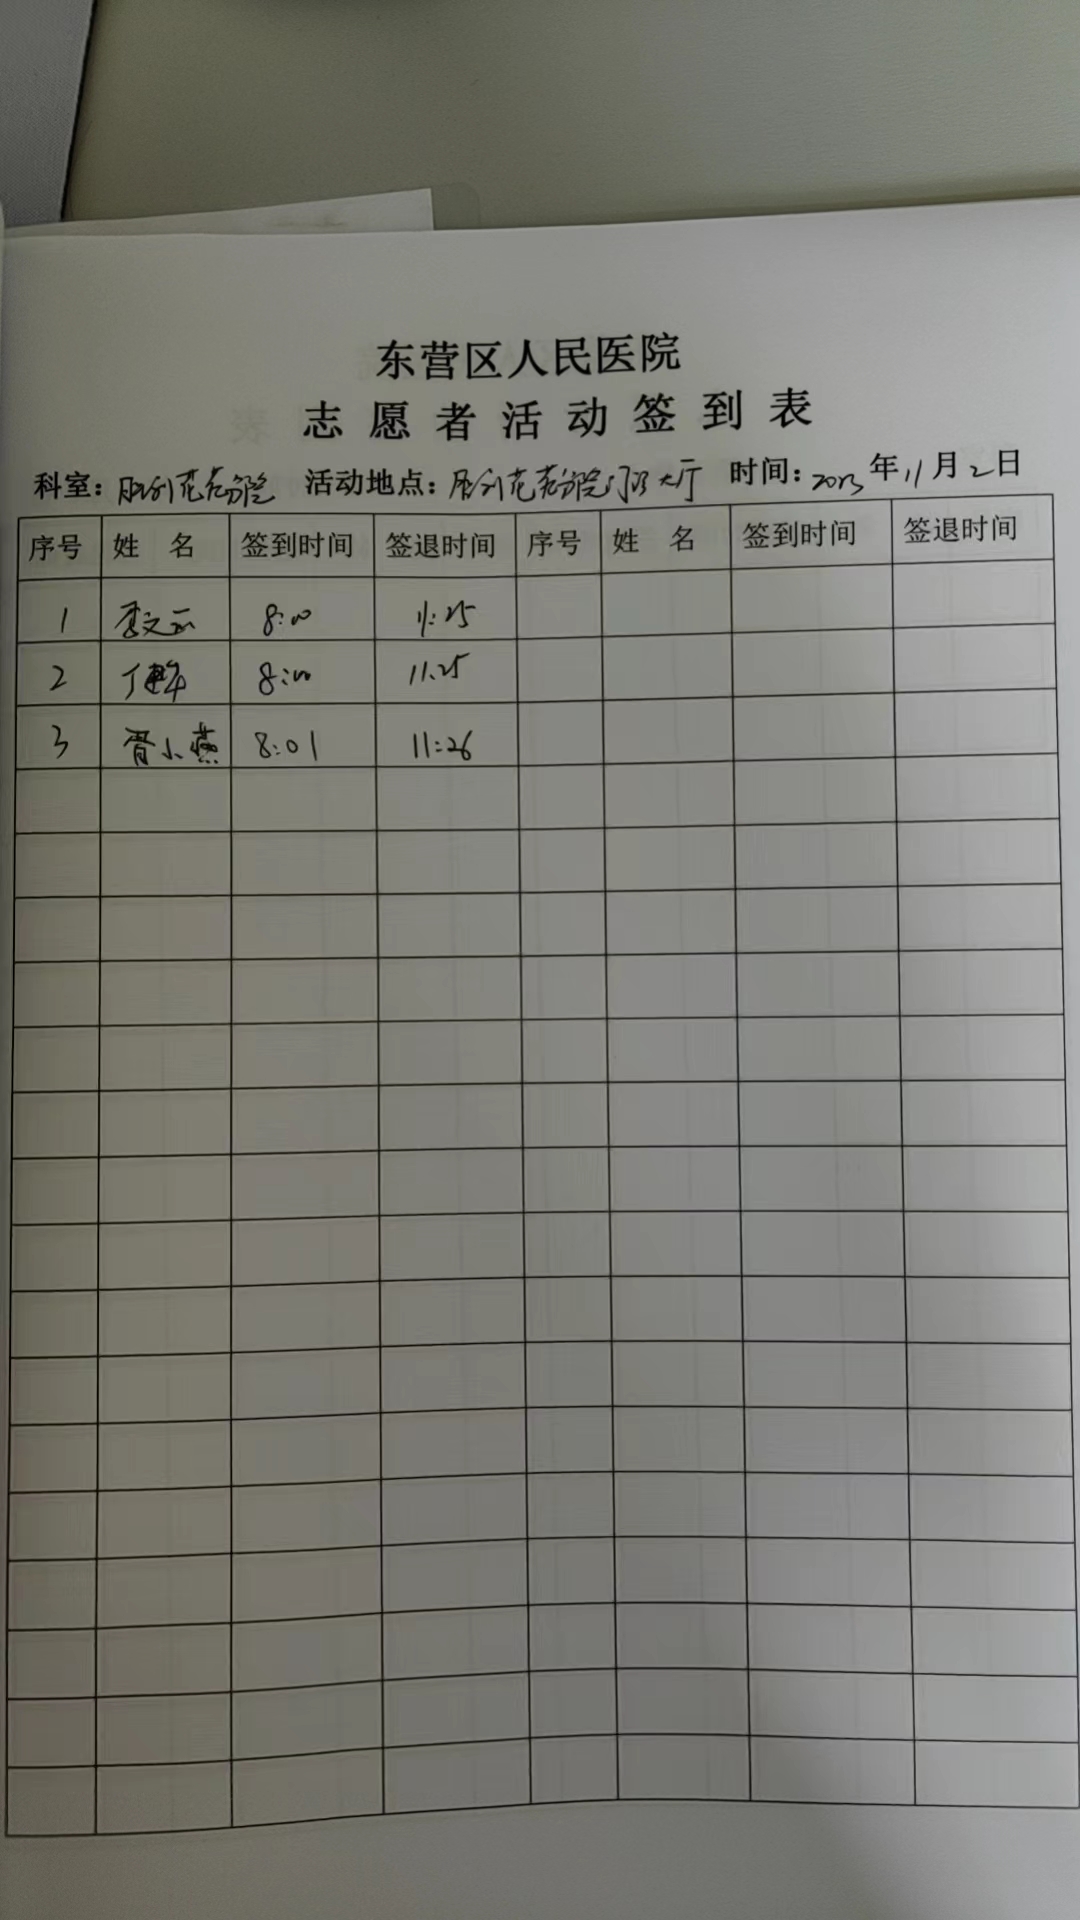 东营区人民医院
志愿者活动签到表
科室：胜利花苑分院 活动地点：胜利花苑分院门诊大厅 时间：2023年11月2日
序号 姓名 签到时间 签退时间 序号 姓名 签到时间 签退时间
1 李文 8:00 11:25
2 8:00 11:25
3 胥小燕 8:01 11:26